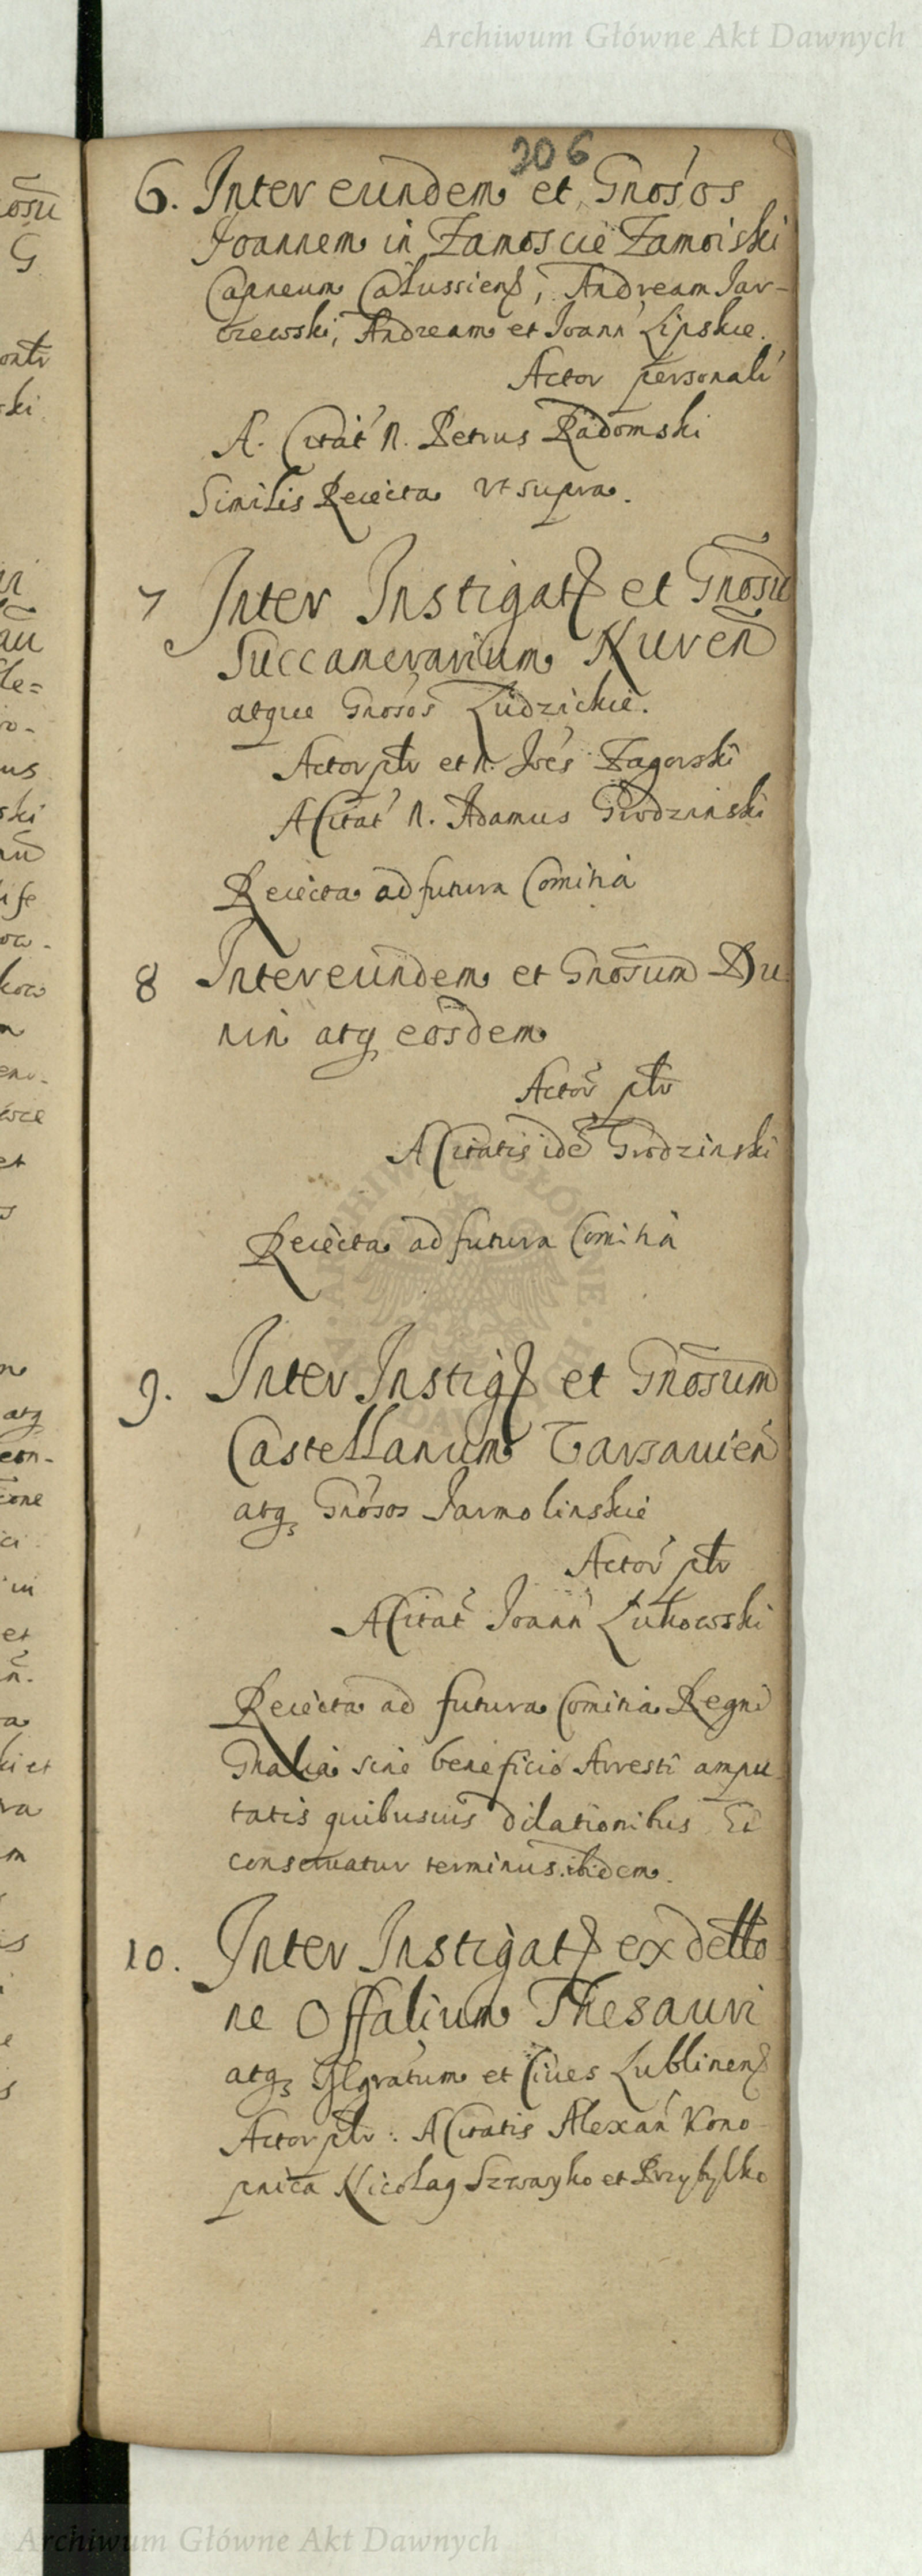 Archiwum Główne Akt Dawnych
206
6. Inter eundem et Gnosos
Joannem in Zamoscie Zamoiski
Capneum Calussiens, Andream Jar-
czewski, Andream et Joann Lipskie.
Actor personali
A. Citat N. Petrus Radomski
Similis Reiecta ut supra.
7 Inter Instigat et Gnosu
Succamerarium Nuren
atque Gnosos Ludzickie.
Actor ptr et N. Joes Zagorski
A Citat N. Adamus Grodzinski
Reiecta ad futura Comitia
8 Inter eundem et Gnosum Du
nin atq eosdem
Actor ptr
A Citatis ide Grodzinski
Reiecta ad futura Comitia
9. Inter Instig et Gnosum
Castellanum Zarnauien
atq Gnosos Jarmolinskie
Actor ptr
A Citat Joann Lutkowski
Reiecta ad futura Comitia Regni
Gnalia sine beneficio Arresti ampu
tatis quibusuis dilationibus Et
conseruatur terminus ibidem.
10. Inter Instigat ex delto
ne Offalium Thesauri
atq et Ciues Lublinens
Actor ptr: A Citatis Alexan Kono
pnica Nicolag Szwayko et Przybylko
Archiwum Główne Akt Dawnych